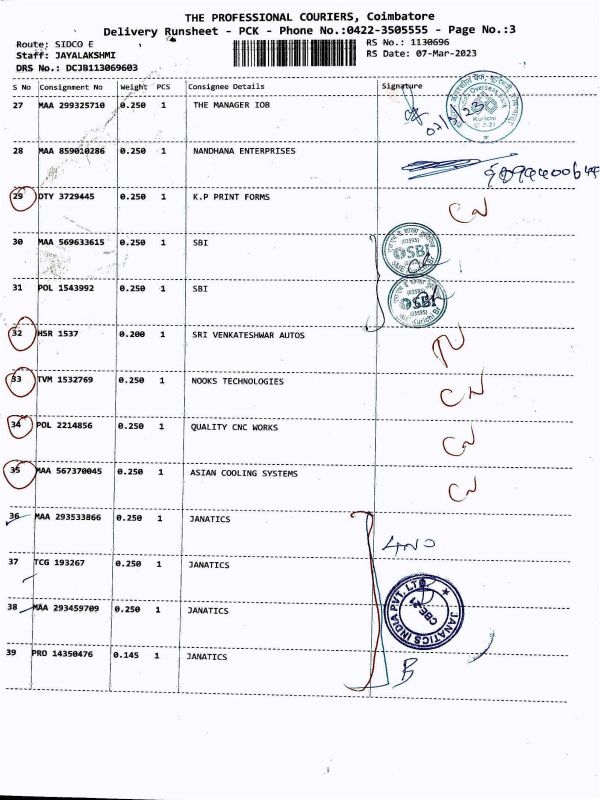 THE PROFESSIONAL COURIERS, Coimbatore
Delivery Runsheet - PCK - Phone No.:0422-3505555 - Page No.:3
Route: SIDCO E RS No.: 1130696
Staff: JAYALAKSHMI RS Date: 07-Mar-2023
DRS No.: DCJB113069603
S No Consignment No Weight PCS Consignee Details Signature
27 MAA 299325710 0.250 1 THE MANAGER IOB
28 MAA 859010286 0.250 1 NANDHANA ENTERPRISES
29 DTY 3729445 0.250 1 K.P PRINT FORMS CN
30 MAA 569633615 0.250 1 SBI SBI
31 POL 1543992 0.250 1 SBI SBI
32 HSR 1537 0.200 1 SRI VENKATESHWAR AUTOS
33 TVM 1532769 0.250 1 NOOKS TECHNOLOGIES CN
34 POL 2214856 0.250 1 QUALITY CNC WORKS CN
35 MAA 567370045 0.250 1 ASIAN COOLING SYSTEMS CN
36 MAA 293533866 0.250 1 JANATICS
37 TCG 193267 0.250 1 JANATICS
38 MAA 293459709 0.250 1 JANATICS JANATICS INDIA PVT. LTD. CBE-21
39 PRO 14350476 0.145 1 JANATICS